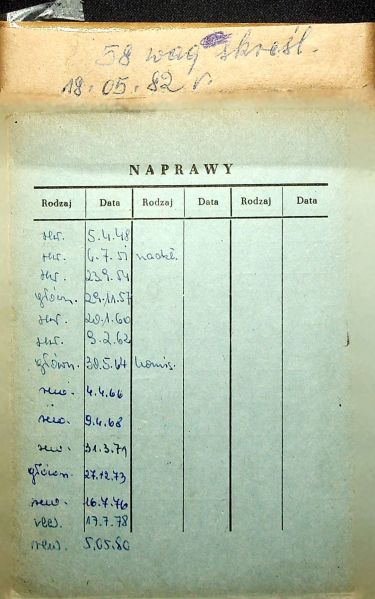 58 wag skreśl.
18.05.82 r.
NAPRAWY
Rodzaj Data Rodzaj Data Rodzaj Data
rew. 5.4.48
rew. 6.7.51
rew. 23.9.54
główn. 29.11.57
rew. 20.1.60
rew. 9.2.62
główn. 30.5.64
rew. 4.4.66
rew. 9.4.68
rew. 31.3.71
główn. 27.12.73
rew. 16.7.76
rew. 17.7.78
rew. 5.05.80